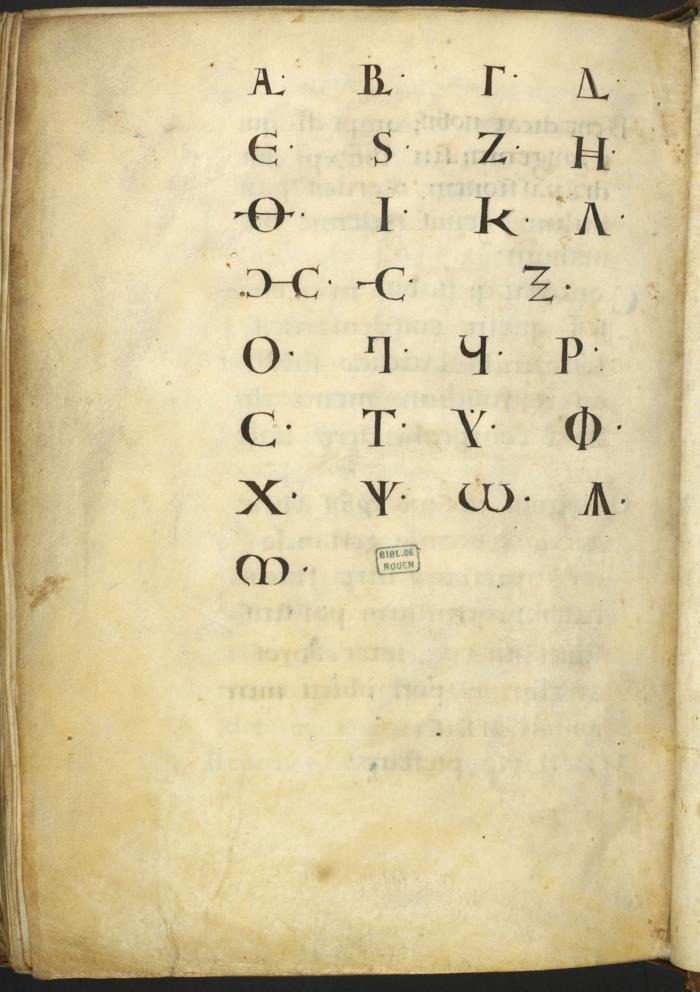 Α· Β· Γ· Δ·
Є· S· Ζ· Η·
Θ· Ι· Κ· Λ·
Ɔ-C· -C· Ξ·
Ο· Π· Ч· Ρ·
C· Τ· Υ· Φ·
Χ· Ψ· Ѡ· Ѧ·
ↀ·
BIBL. DE
ROUEN